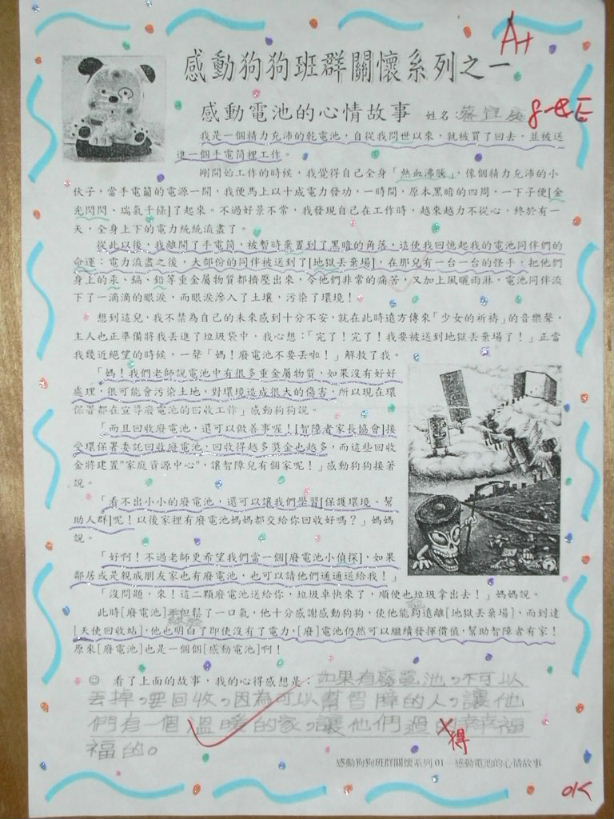 A+
感動狗狗班群關懷系列之一
感動電池的心情故事 姓名
我是一個精力充沛的乾電池，自從我問世以來，就被買了回去，並被送
進一個手電筒裡工作。
剛開始工作的時候，我覺得自己全身「熱血沸騰」，像個精力充沛的小
伙子，當手電筒的電源一開，我便馬上以十成電力發功，一時間，原本黑暗的四周，一下子便[金
光閃閃、瑞氣千條]了起來。不過好景不常，我發現自己在工作時，越來越力不從心，終於有一
天，全身上下的電力統統流盡了。
從此以後，我離開了手電筒，被暫時棄置到了黑暗的角落，這使我回憶起我的電池同伴們的
命運：電力流盡之後，大部份的同伴被送到了[地獄丟棄場]，在那兒有一台一台的怪手，把他們
身上的汞、鎘、鉛等重金屬物質都擠壓出來，令他們非常的痛苦，又加上風曬雨淋，電池同伴流
下了一滴滴的眼淚，而眼淚滲入了土壤，污染了環境！
想到這兒，我不禁為自己的未來感到十分不安，就在此時遠方傳來「少女的祈禱」的音樂聲，
主人也正準備將我丟進了垃圾袋中，我心想：「完了！完了！我要被送到地獄丟棄場了！」正當
我幾近絕望的時候，一聲「媽！廢電池不要丟啦！」解救了我。
「媽！我們老師說電池中有很多重金屬物質，如果沒有好好
處理，很可能會污染土地，對環境造成很大的傷害，所以現在環
保署都在宣導廢電池的回收工作」感動狗狗說。
「而且回收廢電池，還可以做善事喔！[智障者家長協會]接
受環保署委託回收廢電池，回收得越多獎金也越多，而這些回收
金將建置"家庭資源中心"，讓智障兒有個家呢！」感動狗狗接著
說。
「看不出小小的廢電池，還可以讓我們學習[保護環境、幫
助人群]呢！以後家裡有廢電池媽媽都交給你回收好嗎？」媽媽
說。
「好啊！不過老師更希望我們當一個[廢電池小偵探]，如果
鄰居或是親戚朋友家也有廢電池，也可以請他們通通送給我！」
「沒問題，來！這二顆廢電池送給你，垃圾車快來了，順便也垃圾拿出去！」媽媽說。
此時[廢電池]鬆了一口氣，他十分感謝感動狗狗，使他能夠遠離[地獄丟棄場]，而到達
[天使回收站]，他也明白了即使沒有了電力，[廢]電池仍然可以繼續發揮價值，幫助智障者有家！
原來[廢電池]也是一個個[感動電池]啊！
☺ 看了上面的故事，我的心得感想是：如果有廢電池，不可以
丟掉，要回收，因為可以幫智障的人，讓他
們有一個溫暖的家，讓他們過得幸幸福
福的。
感動狗狗班群關懷系列 01—感動電池的心情故事
OK